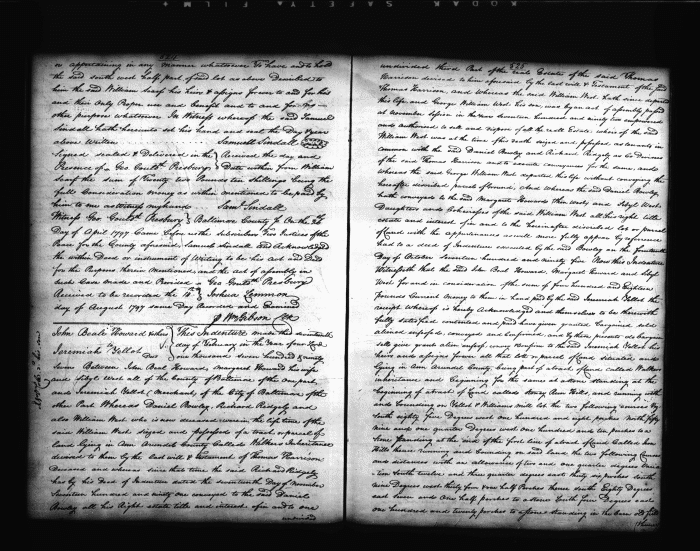 KODAK SAFETY FILM
or appertaining in any manner whatsoever To have and to hold
the said south west half part of said lot as above Described to
him the said William Scarf his heirs & assigns forever to and for his
and their Only Proper use and benefit and to and for no
other purpose whatsoever In Witness whereof the said Samuel
Sindall hath hereunto set his hand and seal the Day & year
above Written Samuel Sindall
Signed sealed & Delivered in the Received the day and
Presence of Geo Gouldh. Presbury Date within from William
Scarf the sum of Twenty two Pounds ten shillings being the
full Consideration money as within mentioned to be paid by
him to me as witness my hand Saml Sindall
Witness Geo Gouldh. Presbury Baltimore County Sc On the
Day of April 1797 Came before us the subscribers Two Justices of the
Peace for the County aforesaid Samuel Sindall and Acknowledged
the within Deed or instrument of Writing to be his act and Deed
for the Purposes therein Mentioned and the act of assembly in
such Case made and Provided Geo Gouldh. Presbury
Received to be recorded the 18th
day of August 1797 same Day Recorded and Examined
Wm Gibson Clk
John Beale Howard & others This Indenture made this seventeenth
to day of February in the Year of our Lord
Jeremiah Yellott Deed one thousand seven hundred & ninety
Seven Between John Beale Howard, Margaret Howard his wife
and Sibyl West all of the County of Baltimore of the one part,
and Jeremiah Yellott Merchant of the City of Baltimore of the
other Part Whereas Daniel Bowley Richard Ridgely and
also William West who is now deceased were in the life time of the
said William West seized and possessed of a tract or parcel of
Land lying in Ann Arundel County Called Welkers Inheritance
devised to them by the last will & testament of Thomas Harrison
Deceased and whereas since that time the said Richard Ridgely
has by his Deed of Indenture dated the seventeenth Day of November
Seventeen hundred and ninety one conveyed to the said Daniel
Bowley all his Right estate title and interest of in and to one
undivided
525
undivided third Part of the real Estate of the said Thomas
Harrison devised to him aforesaid by the last will & Testament of the said
Thomas Harrison, and whereas the said William West hath since departed
this life and George William West his son, was by an act of assembly passed
at November session in the year seventeen hundred and ninety five empowered
and authorized to sell and dispose of all the real Estate where of the said
William West was at the time of his death seized and possessed, as tenants in
common with the said Daniel Bowley and Richard Ridgely as Devisees
of the said Thomas Harrison and to execute conveyances for the same, and
whereas the said George William West departed this life without conveying the
herein after described parcel of Ground, And whereas the said Daniel Bowley
hath conveyed to the said Margaret Howard then West and Sibyl West
Daughters and Coheiresses of the said William West all his right title
estate and interest of in and to the herein after described lot or parcel
of Land with the appurtenances as will more fully appear by reference
had to a deed of Indenture executed by the said Bowley on the fourteenth
Day of October Seventeen hundred and ninety five Now this Indenture
Witnesseth that the said John Beale Howard, Margaret Howard and Sibyl
West for and in consideration of the sum of four hundred and Eighteen
Pounds Current money to them in hand paid by the said Jeremiah Yellott the
receipt whereof is hereby Acknowledged and themselves to be therewith
fully satisfied contented and paid have given granted bargained sold
aliened enfeoffed conveyed and confirmed and by these presents do bargain
sell give grant alien enfeoff convey & confirm to the said Jeremiah Yellott his
heirs and assigns forever all that lot or parcel of Land situated and
lying in Ann Arundel County being part of a tract of Land called Welkers
inheritance and Beginning for the same at a stone standing at the
beginning of a tract of Land called Henry Ann Hills, and running with
and bounding on the two following courses by
South eighty five Degrees west one hundred and eight perches North fifty
nine and one quarter Degrees west one hundred and six perches to a
stone standing at the end of the first line of a tract of Land Called Ann
Hills thence running and bounding on said land the two following Courses
and distances with an allowance of two and one quarter Degrees
South twelve and three quarter Degrees east thirty six perches south
nine Degrees west thirty four and a half Perches thence south Eighty Degrees
east Seven and One half perches to a stone South five Degrees east
one hundred and twenty perches to a stone standing in the old field
thence